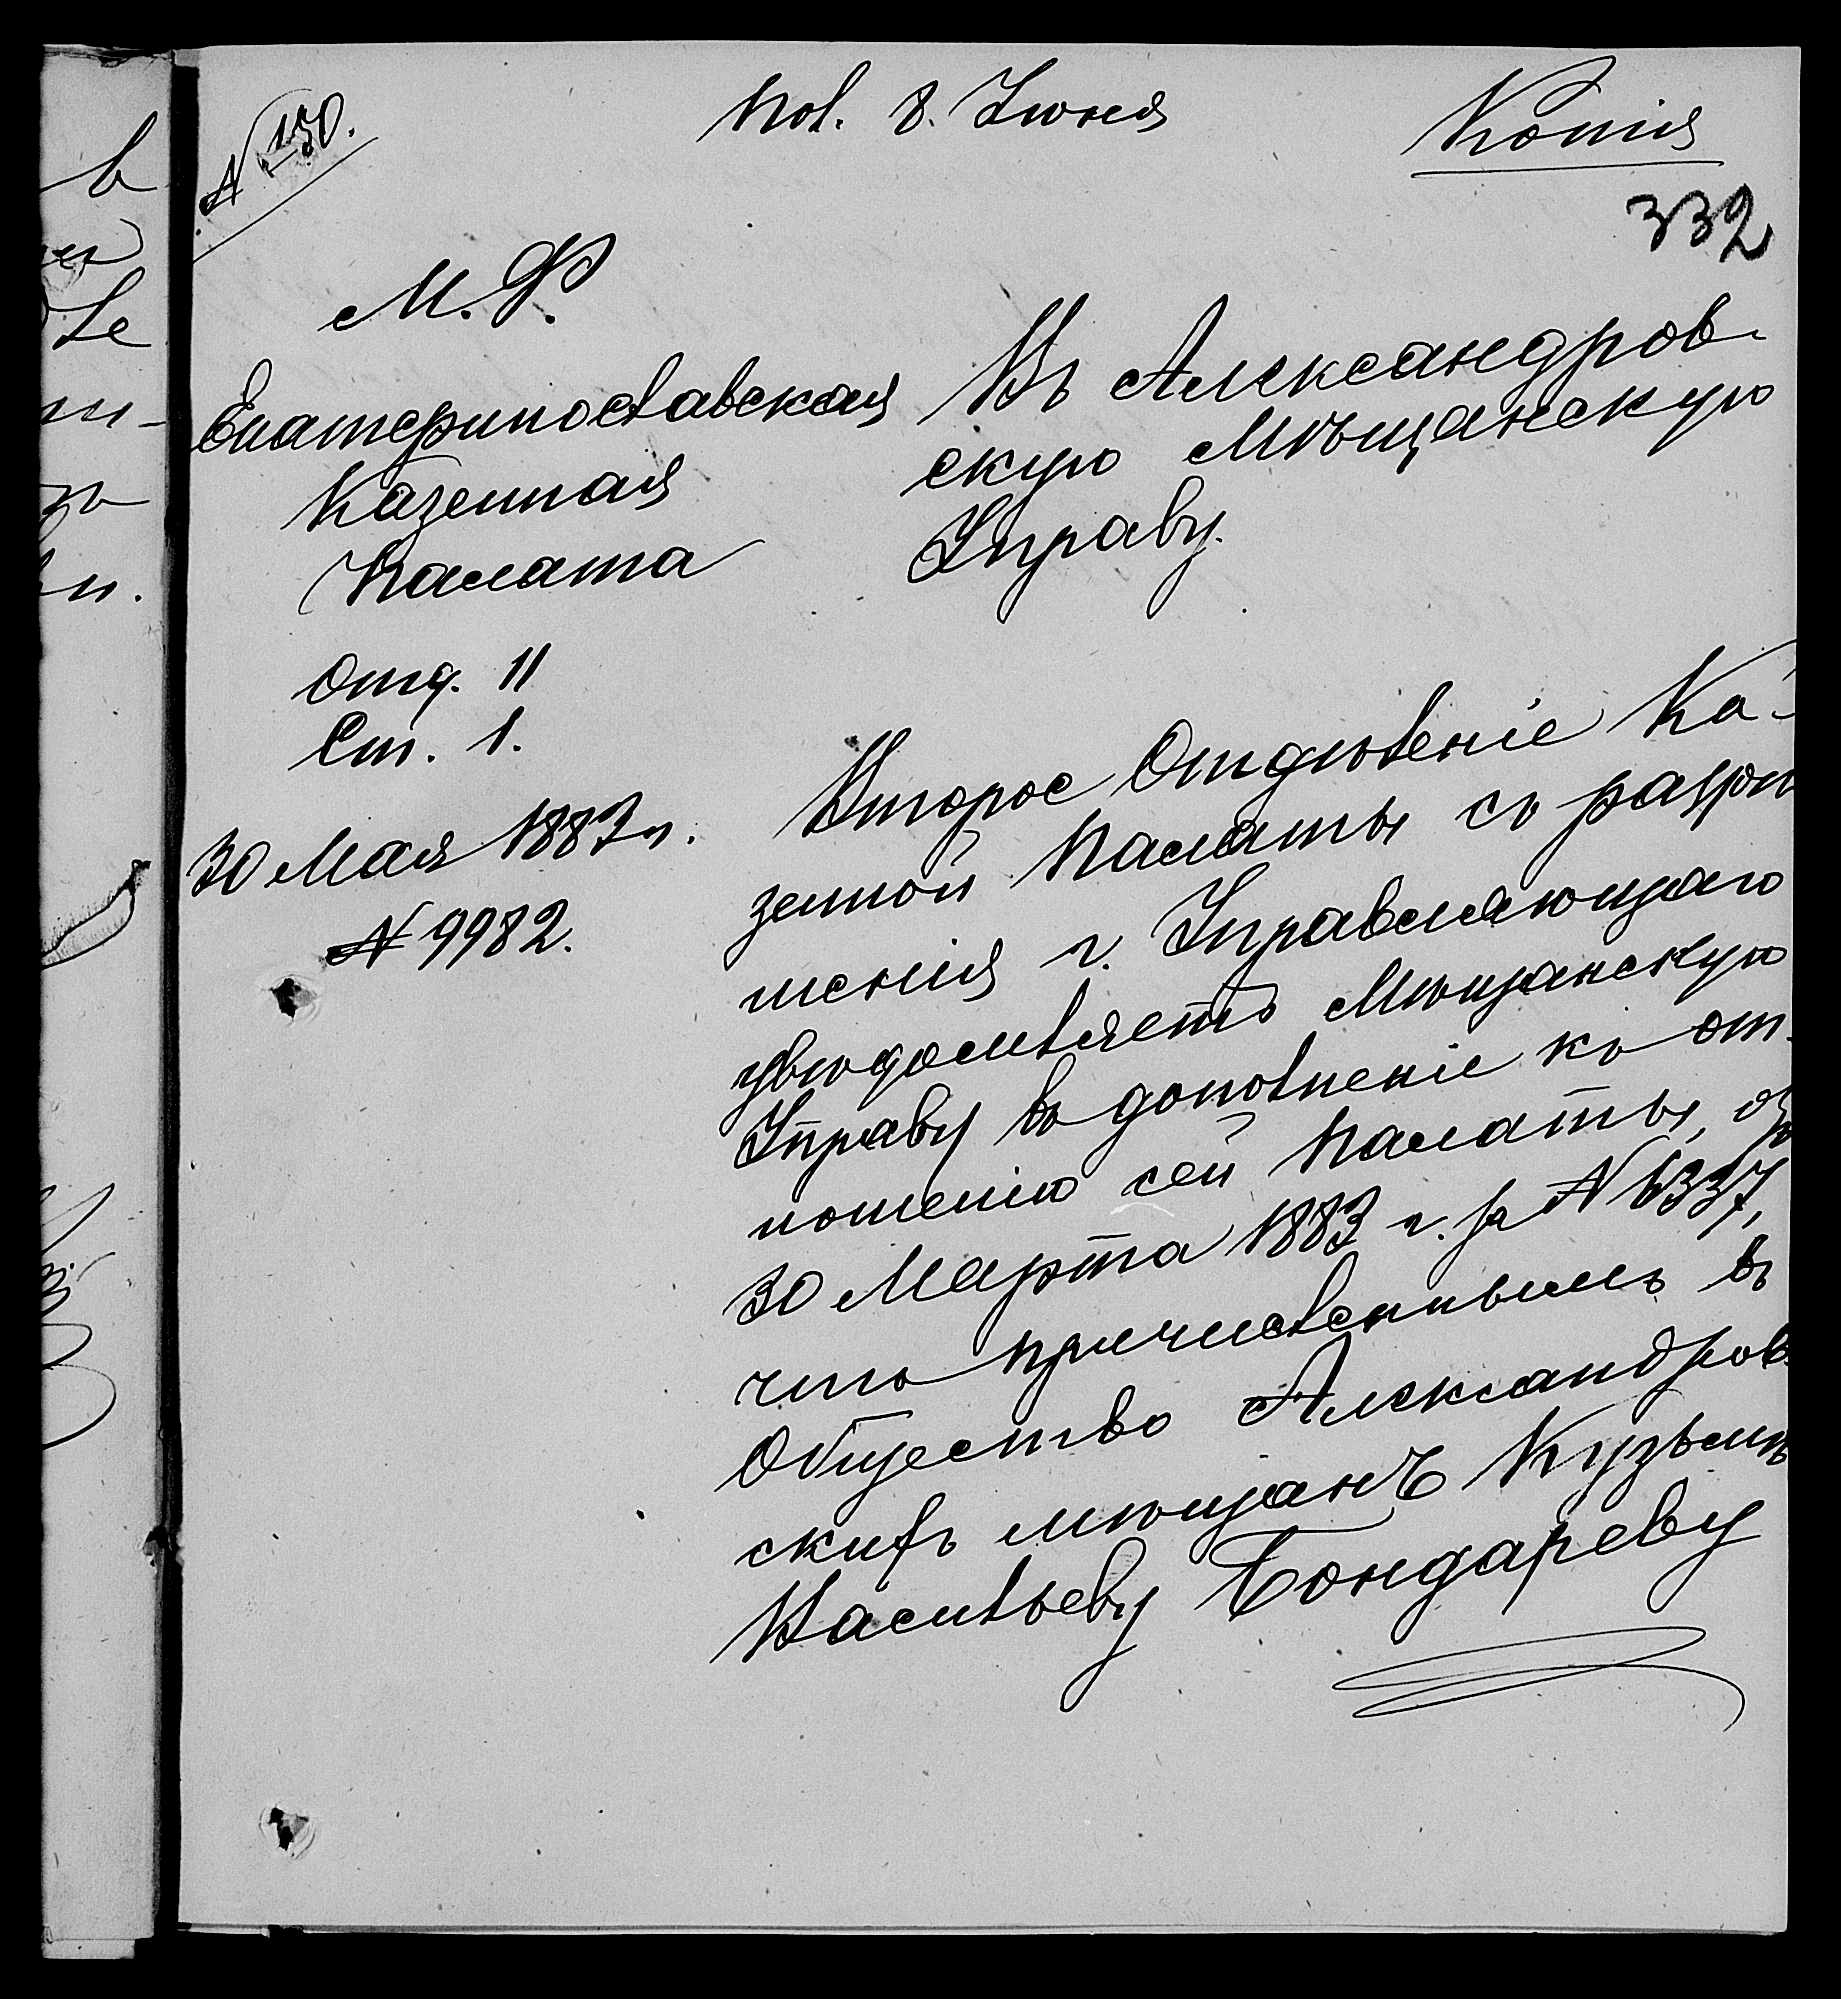 № 150.
Пол. 8. Іюня
Копія
332
М. Ф.
Екатеринославская
Казенная
Палата
Отд. II
Ст. 1.
30 Мая 1883 г.
№ 9982.
Въ Александров-
скую Мѣщанскую
Управу.
Второе Отдѣленіе Ка-
зенной Палаты съ разрѣ
шенія г. Управляющаго
увѣдомляетъ Мѣщанскую
Управу въ дополненіе къ от-
ношенію сей Палаты, отъ
30 Марта 1883 г. за № 6337,
что причисленнымъ въ
Общество Александров-
скихъ мѣщанъ Кузьмѣ
Васильеву Бондареву